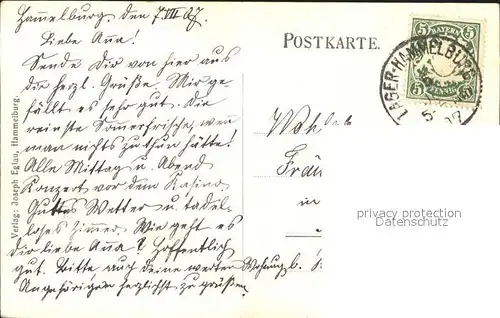 Hammelburg, den 7. VIII 07.
Liebe Anna!
Sende Dir von hier aus
die herzl. Grüße. Mir ge-
fällt es sehr gut. Die
reinste Sommerfrische, wenn
man nichts zu thun hätte!
Alle Mittag u. Abend
Konzert vor dem Kasino.
Guttes Wetter u. tadel-
loses Zimmer. Wie geht es
Dir liebe Anna? Hoffentlich
gut. Bitte auch deine werten
Angehörigen herzlichst zu grüßen
Verlag: Joseph Eglau, Hammelburg.
POSTKARTE.
5 BAYERN 5
5 PFENNIG 5
LAGER-HAMMELBURG
Woh
Fräu
in
Wohnung b.
privacy protection
Datenschutz